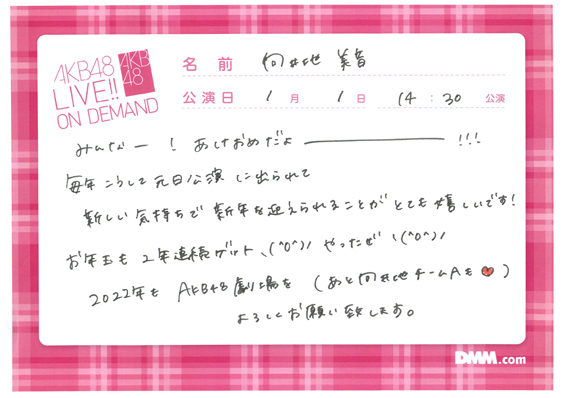 AKB48
LIVE!!
ON DEMAND
AKB
48
名前 向井地 美音
公演日 1月 1日 14:30 公演
みんなー！ あけおめだよ――――!!!
毎年こうして元日公演に出られて
新しい気持ちで新年を迎えられることがとても嬉しいです!
お年玉も2年連続ゲットヽ(^0^)ノ やったぜヽ(^0^)ノ
2022年も AKB48劇場を (あと向井地チームAも♥)
よろしくお願い致します。
DMM.com